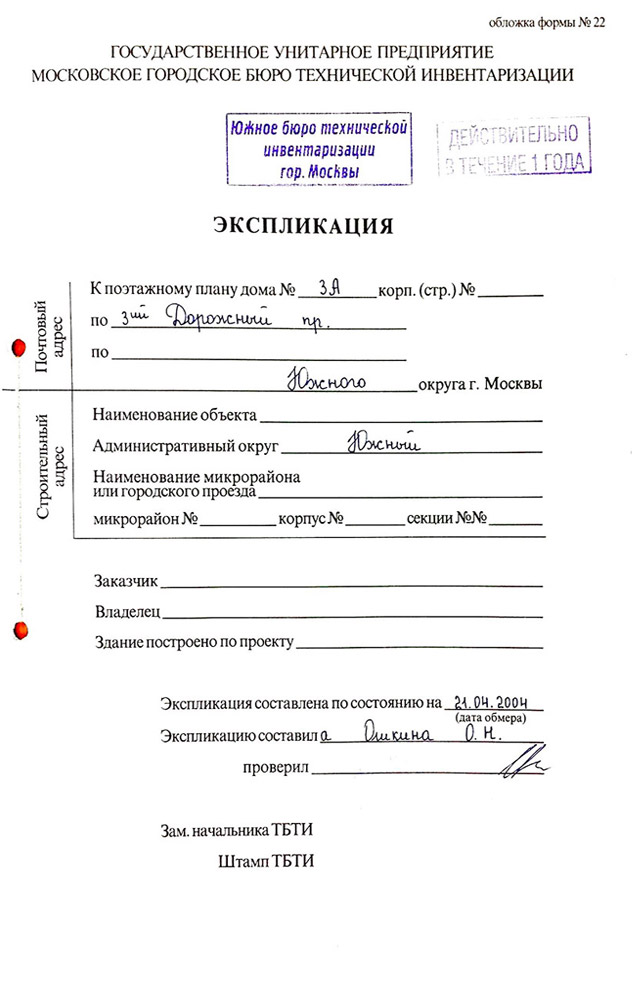 обложка формы № 22
ГОСУДАРСТВЕННОЕ УНИТАРНОЕ ПРЕДПРИЯТИЕ
МОСКОВСКОЕ ГОРОДСКОЕ БЮРО ТЕХНИЧЕСКОЙ ИНВЕНТАРИЗАЦИИ
Южное бюро технической
инвентаризации
гор. Москвы
ДЕЙСТВИТЕЛЬНО
В ТЕЧЕНИЕ 1 ГОДА
ЭКСПЛИКАЦИЯ
Почтовый
адрес
К поэтажному плану дома № 3А корп. (стр.) №
по 3ий Дорожный пр.
по
Южного округа г. Москвы
Строительный
адрес
Наименование объекта
Административный округ Южный
Наименование микрорайона
или городского проезда
микрорайон № корпус № секции №№
Заказчик
Владелец
Здание построено по проекту
Экспликация составлена по состоянию на 21.04.2004
(дата обмера)
Экспликацию составила Ошкина О. Н.
проверил
Зам. начальника ТБТИ
Штамп ТБТИ